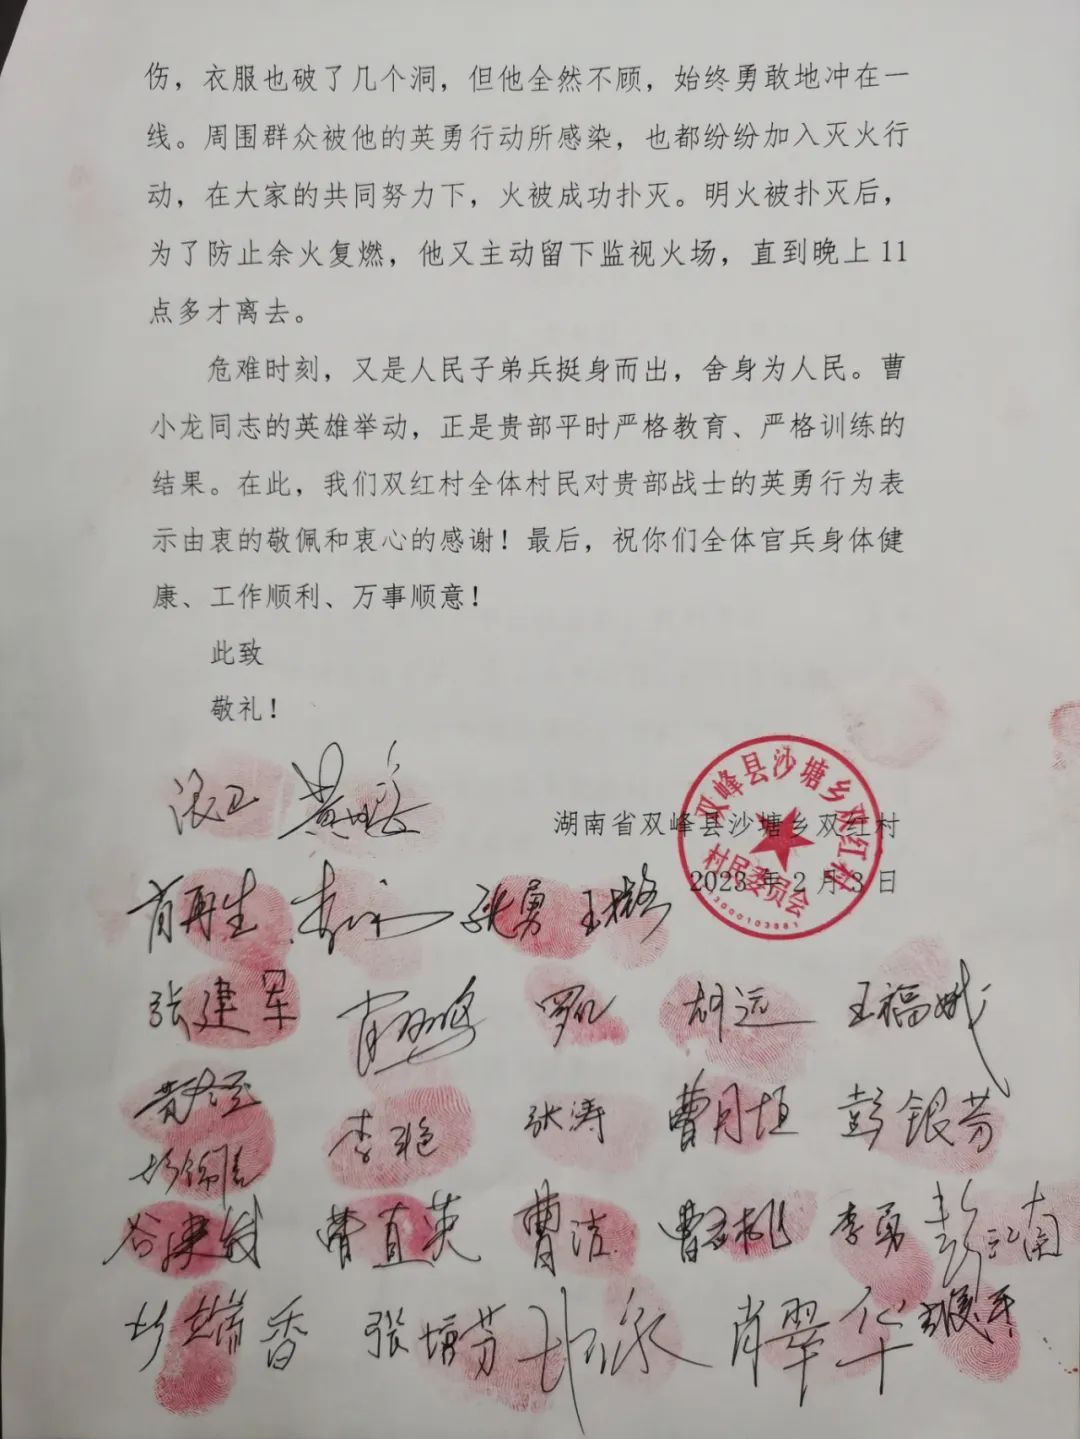 伤，衣服也破了几个洞，但他全然不顾，始终勇敢地冲在一
线。周围群众被他的英勇行动所感染，也都纷纷加入灭火行
动，在大家的共同努力下，火被成功扑灭。明火被扑灭后，
为了防止余火复燃，他又主动留下监视火场，直到晚上 11
点多才离去。
危难时刻，又是人民子弟兵挺身而出，舍身为人民。曹
小龙同志的英雄举动，正是贵部平时严格教育、严格训练的
结果。在此，我们双红村全体村民对贵部战士的英勇行为表
示由衷的敬佩和衷心的感谢！最后，祝你们全体官兵身体健
康、工作顺利、万事顺意！
此致
敬礼！
双峰县沙塘乡双红村
村民委员会
湖南省双峰县沙塘乡双红村
2023 年 2 月 3 日
肖再生 张勇
张建军 罗 胡远 王福娥
李艳 张涛 曹月垣 彭银芬
曹直英 曹洁 曹 桃 李勇 彭江南
端香 张培芬 永 肖翠华